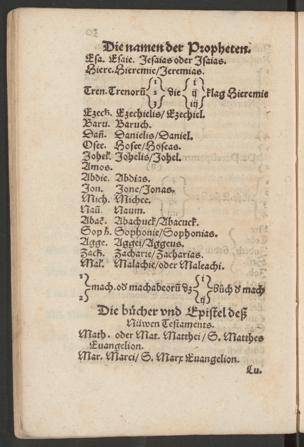 Die namen der Propheten.
Esa. Esaie. Jesaias oder Isaias.
Hiere. Hieremie/Jeremias.
Tren. Trenorū { 1 2 3 } die { i ij iij } klag Hieremie
Ezech. Ezechielis/Ezechiel.
Baru. Baruch.
Dañ. Danielis/Daniel.
Osee. Hosee/Hoseas.
Johel. Johelis/Johel.
Amos.
Abdie. Abdias.
Jon. Jone/Jonas.
Mich. Michee.
Naū. Naum.
Abak. Abachuck/Abacuck.
Soph. Sophonie/Sophonias.
Agge. Aggei/Aggeus.
Zach. Zacharie/Zacharias.
Mal. Malachie/oder Maleachi.
{ 1 2 } mach. od machabeorū dz { i ij } Buch d mach
Die bücher vnd Epistel deß
Nüwen Testaments.
Math. oder Mat. Matthei/S. Matthes
Euangelion.
Mar. Marci/S. Marx Euangelion.
Lu.